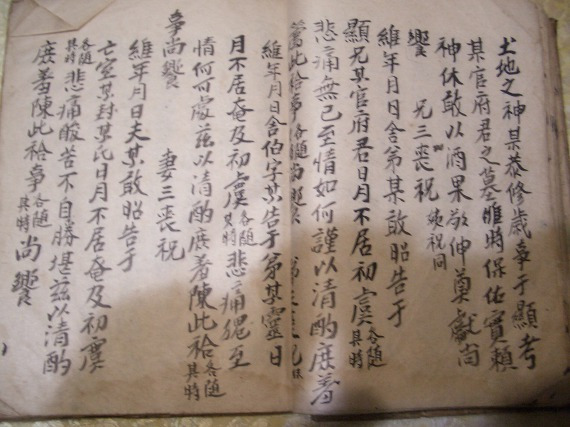 土地之神某恭修歲事于顯考
某官府君之墓惟時保佑實賴
神休敢以酒果敬伸奠獻尚
饗 兄三喪祝 嫂祝同
維年月日舍弟某敢昭告于
顯兄某官府君日月不居初虞 各隨其時
悲痛無已至情如何謹以清酌庶羞
薦此祫事 各隨 尚饗
維年月日舍伯字某告于弟某靈日
月不居奄及初虞 各隨其時 悲痛猥至
情何可處玆以清酌庶羞陳此祫 各隨其時
事尚饗 妻三喪祝
維年月日夫某敢昭告于
亡室某封某氏日月不居奄及初虞
各隨其時 悲痛酸苦不自勝堪玆以清酌
庶羞陳此祫事 各隨其時 尚饗